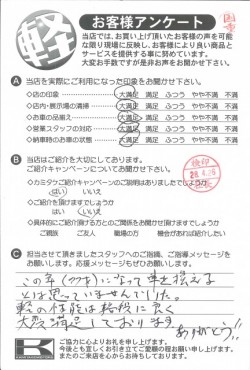 軽
お客様アンケート
当店では、お買い上げ頂いたお客様の声を可能
な限り現場に反映し、お客様により良い商品と
サービスを提供する事に努めています。
大変お手数ですが是非お声をお聞かせ下さい。
A 当店を実際にご利用になった印象をお聞かせ下さい。
○店の印象 大満足 満足 ふつう やや不満 不満
○店内・展示場の清掃 大満足 満足 ふつう やや不満 不満
○お車の品揃え 大満足 満足 ふつう やや不満 不満
○営業スタッフの対応 大満足 満足 ふつう やや不満 不満
○納車時のお車の状態 大満足 満足 ふつう やや不満 不満
B 当店はご紹介を大切にしております。
ご紹介キャンペーンについてお聞かせ下さい。
○カミタケご紹介キャンペーンのご説明はありましたでしょうか
はい いいえ
○ご紹介を頂けますでしょうか
はい いいえ
○具体的にご紹介頂ける方とのご関係をお聞かせ頂けますでしょうか
ご親族 ご友人 職場の方 機会があれば紹介したい
C 担当させて頂きましたスタッフへのご指摘、ご指導メッセージを
お願いします。応援メッセージもぜひお願いします。
この年(77才)になって車を換える
とは思っていませんでした。
軽の性能は格段に良く
大変満足しております
ありがとう!!
K
ご協力に心よりお礼を申し上げます。
今後とも宜しくお引き立てご愛顧の程お願い申し上げます。
またのご来店を心からお待ちしております。